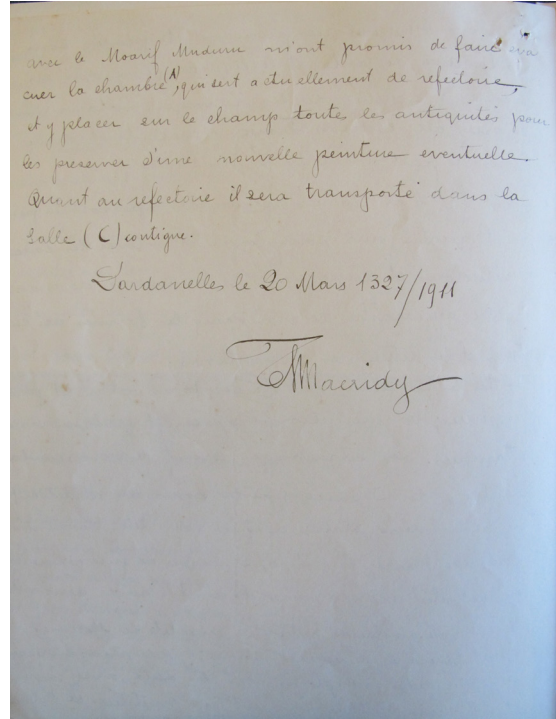 avec le Moarif Muduru m'ont promis de faire éva
cuer la chambre (A), qui sert actuellement de refectoire,
et y placer sur le champ toutes les antiquités pour
les preserver d'une nouvelle peinture eventuelle.
Quant au refectoire il sera transporté dans la
Salle (C) contigue.
Dardanelles le 20 Mars 1327/1911
TMacridy